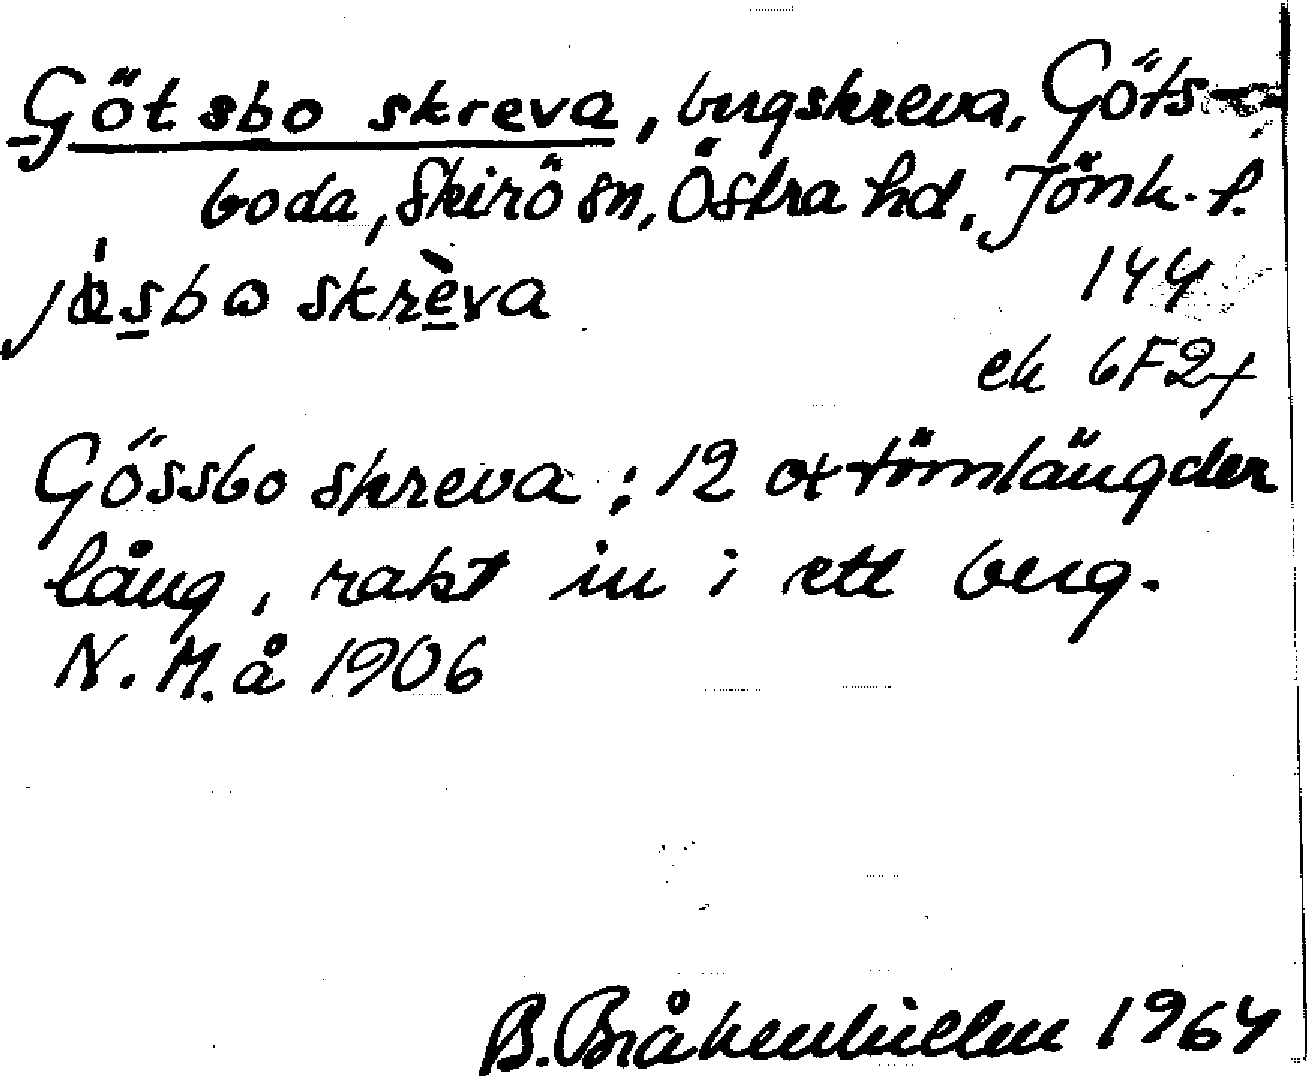 Götsbo skreva, bergskreva, Göts-
boda, Skirö sn, Östra hd. Jönk. l.
skrèva
144
ek 6F2f
Gössbo skreva: 12 oxtömlängder
lång, rakt in i ett berg.
N. M. å 1906
B. Bråkenhielm 1964